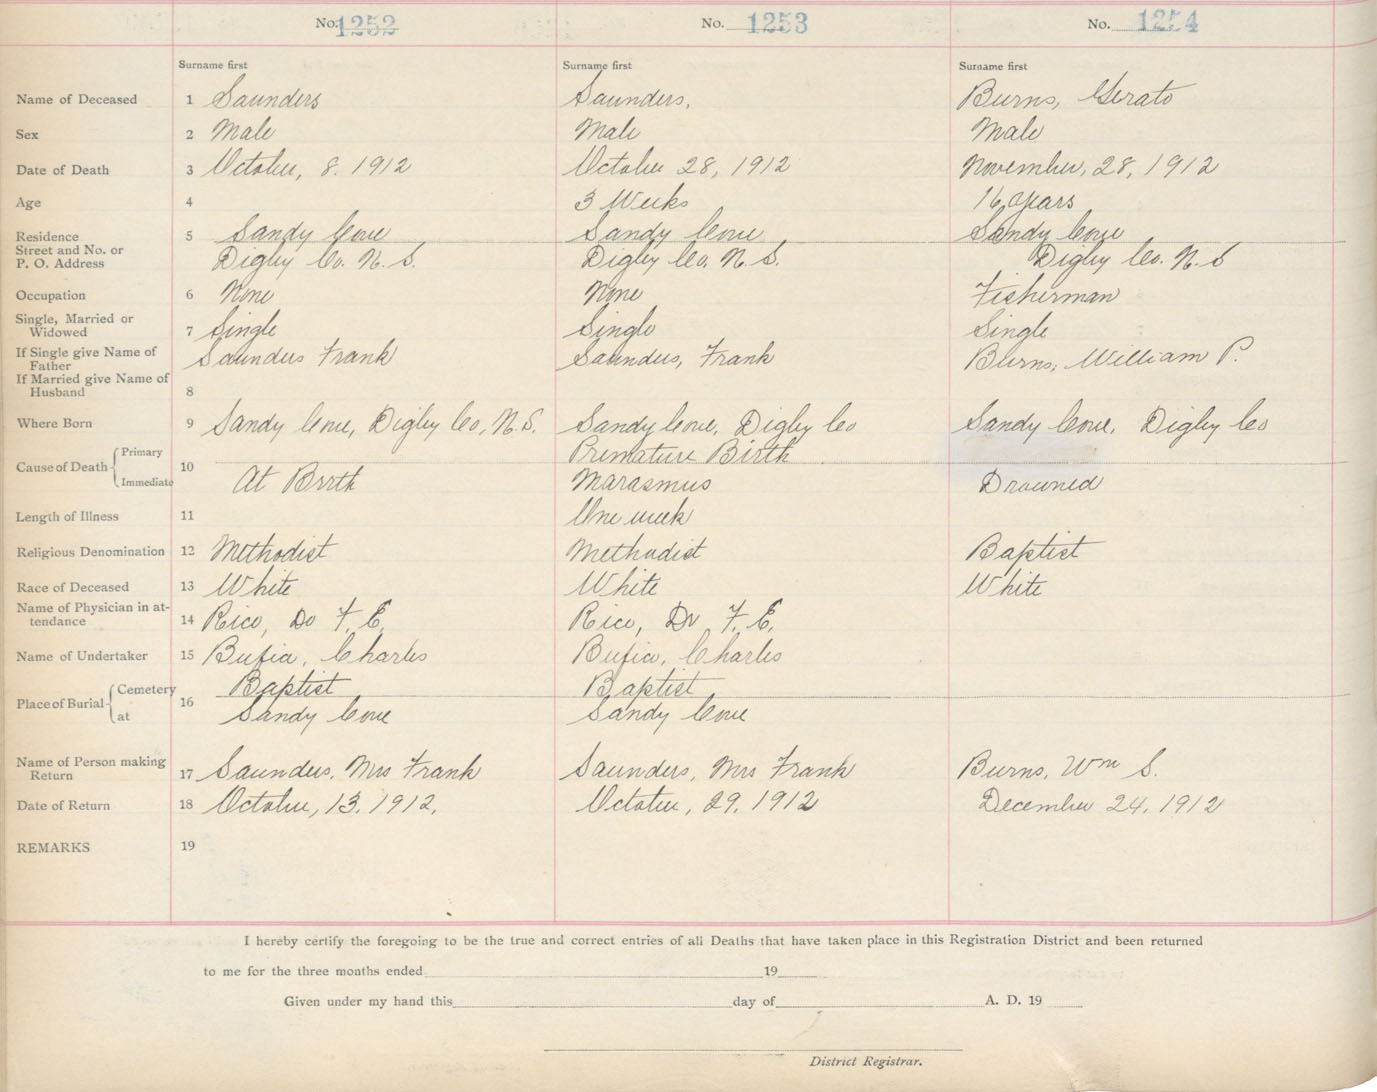 No. 1252 No. 1253 No. 1254
Surname first Surname first Surname first
Name of Deceased 1 Saunders Saunders, Burns, Gerato
Sex 2 Male Male Male
Date of Death 3 October, 8. 1912 October 28, 1912 November, 28, 1912
Age 4 3 Weeks 16 years
Residence 5 Sandy Cove Sandy Cove Sandy Cove
Street and No. or
P. O. Address Digby Co. N. S. Digby Co. N. S. Digby Co. N. S
Occupation 6 None None Fisherman
Single, Married or
Widowed 7 Single Single Single
If Single give Name of
Father Saunders Frank Saunders, Frank Burns, William P.
If Married give Name of
Husband 8
Where Born 9 Sandy Cove, Digby Co, N. S. Sandy Cove, Digby Co Sandy Cove, Digby Co
Cause of Death Primary Premature Birth
10
Immediate At Brrth Marasmus Drowned
Length of Illness 11 One week
Religious Denomination 12 Methodist Methodist Baptist
Race of Deceased 13 White White White
Name of Physician in at-
tendance 14 Rice, Dr F. E. Rice, Dr F. E.
Name of Undertaker 15 Charles Charles
Place of Burial Cemetery Baptist Baptist
16
at Sandy Cove Sandy Cove
Name of Person making
Return 17 Saunders, Mrs Frank Saunders, Mrs Frank Burns, Wm S.
Date of Return 18 October, 13, 1912, October, 29, 1912 December 24, 1912
REMARKS 19
I hereby certify the foregoing to be the true and correct entries of all Deaths that have taken place in this Registration District and been returned
to me for the three months ended 19
Given under my hand this day of A. D. 19
District Registrar.